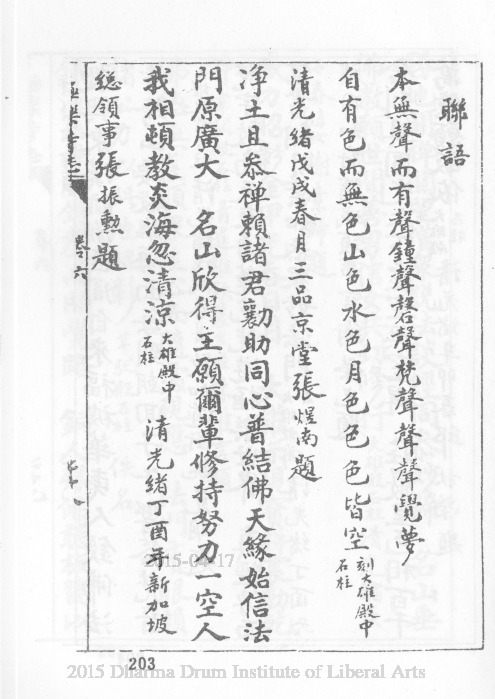 聯語
本無聲而有聲鐘聲磬聲梵聲聲聲覺夢
自有色而無色山色水色月色色色皆空 刻大雄殿中石柱
清光緒戊戌春月三品京堂張煜南題
淨土且叅禪賴諸君勷助同心普結佛天緣始信法
門原廣大 名山欣得主願爾輩修持努力一空人
我相頓教炎海忽清涼 大雄殿中石柱 清光緒丁酉年新加坡
総領事張振勲題
極樂寺志 卷之六
2015-04-17
203
2015 Dharma Drum Institute of Liberal Arts